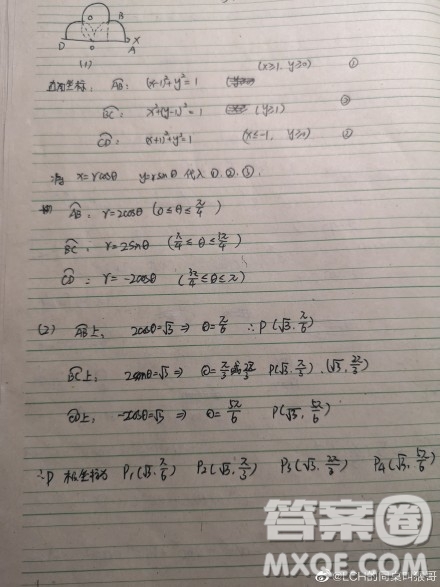 B
D O A X
(1)
直角坐标, AB: (x-1)²+y²=1 (x≥1, y≥0) ①
BC: x²+(y-1)²=1 (y≥1) ②
CD: (x+1)²+y²=1 (x≤-1, y≥0) ③
将 x=rcosθ y=rsinθ 代入①,②,③,
AB: r=2cosθ (0≤θ≤π/4)
BC: r=2sinθ (π/4≤θ≤3π/4)
CD: r=-2cosθ (3π/4≤θ≤π)
(2) AB上, 2cosθ=√3 ⇒ θ=π/6 ∴P(√3,π/6)
BC上, 2sinθ=√3 ⇒ θ=π/3或2π/3 P(√3,π/3).(√3,2π/3)
CD上, -2cosθ=√3 ⇒ θ=5π/6 P(√3,5π/6)
∴P 极坐标为 P₁(√3,π/6) P₂(√3,π/3) P₃(√3,2π/3) P₄(√3,5π/6)
答案圈
MXQE.COM
@LCH的同桌叫张哥